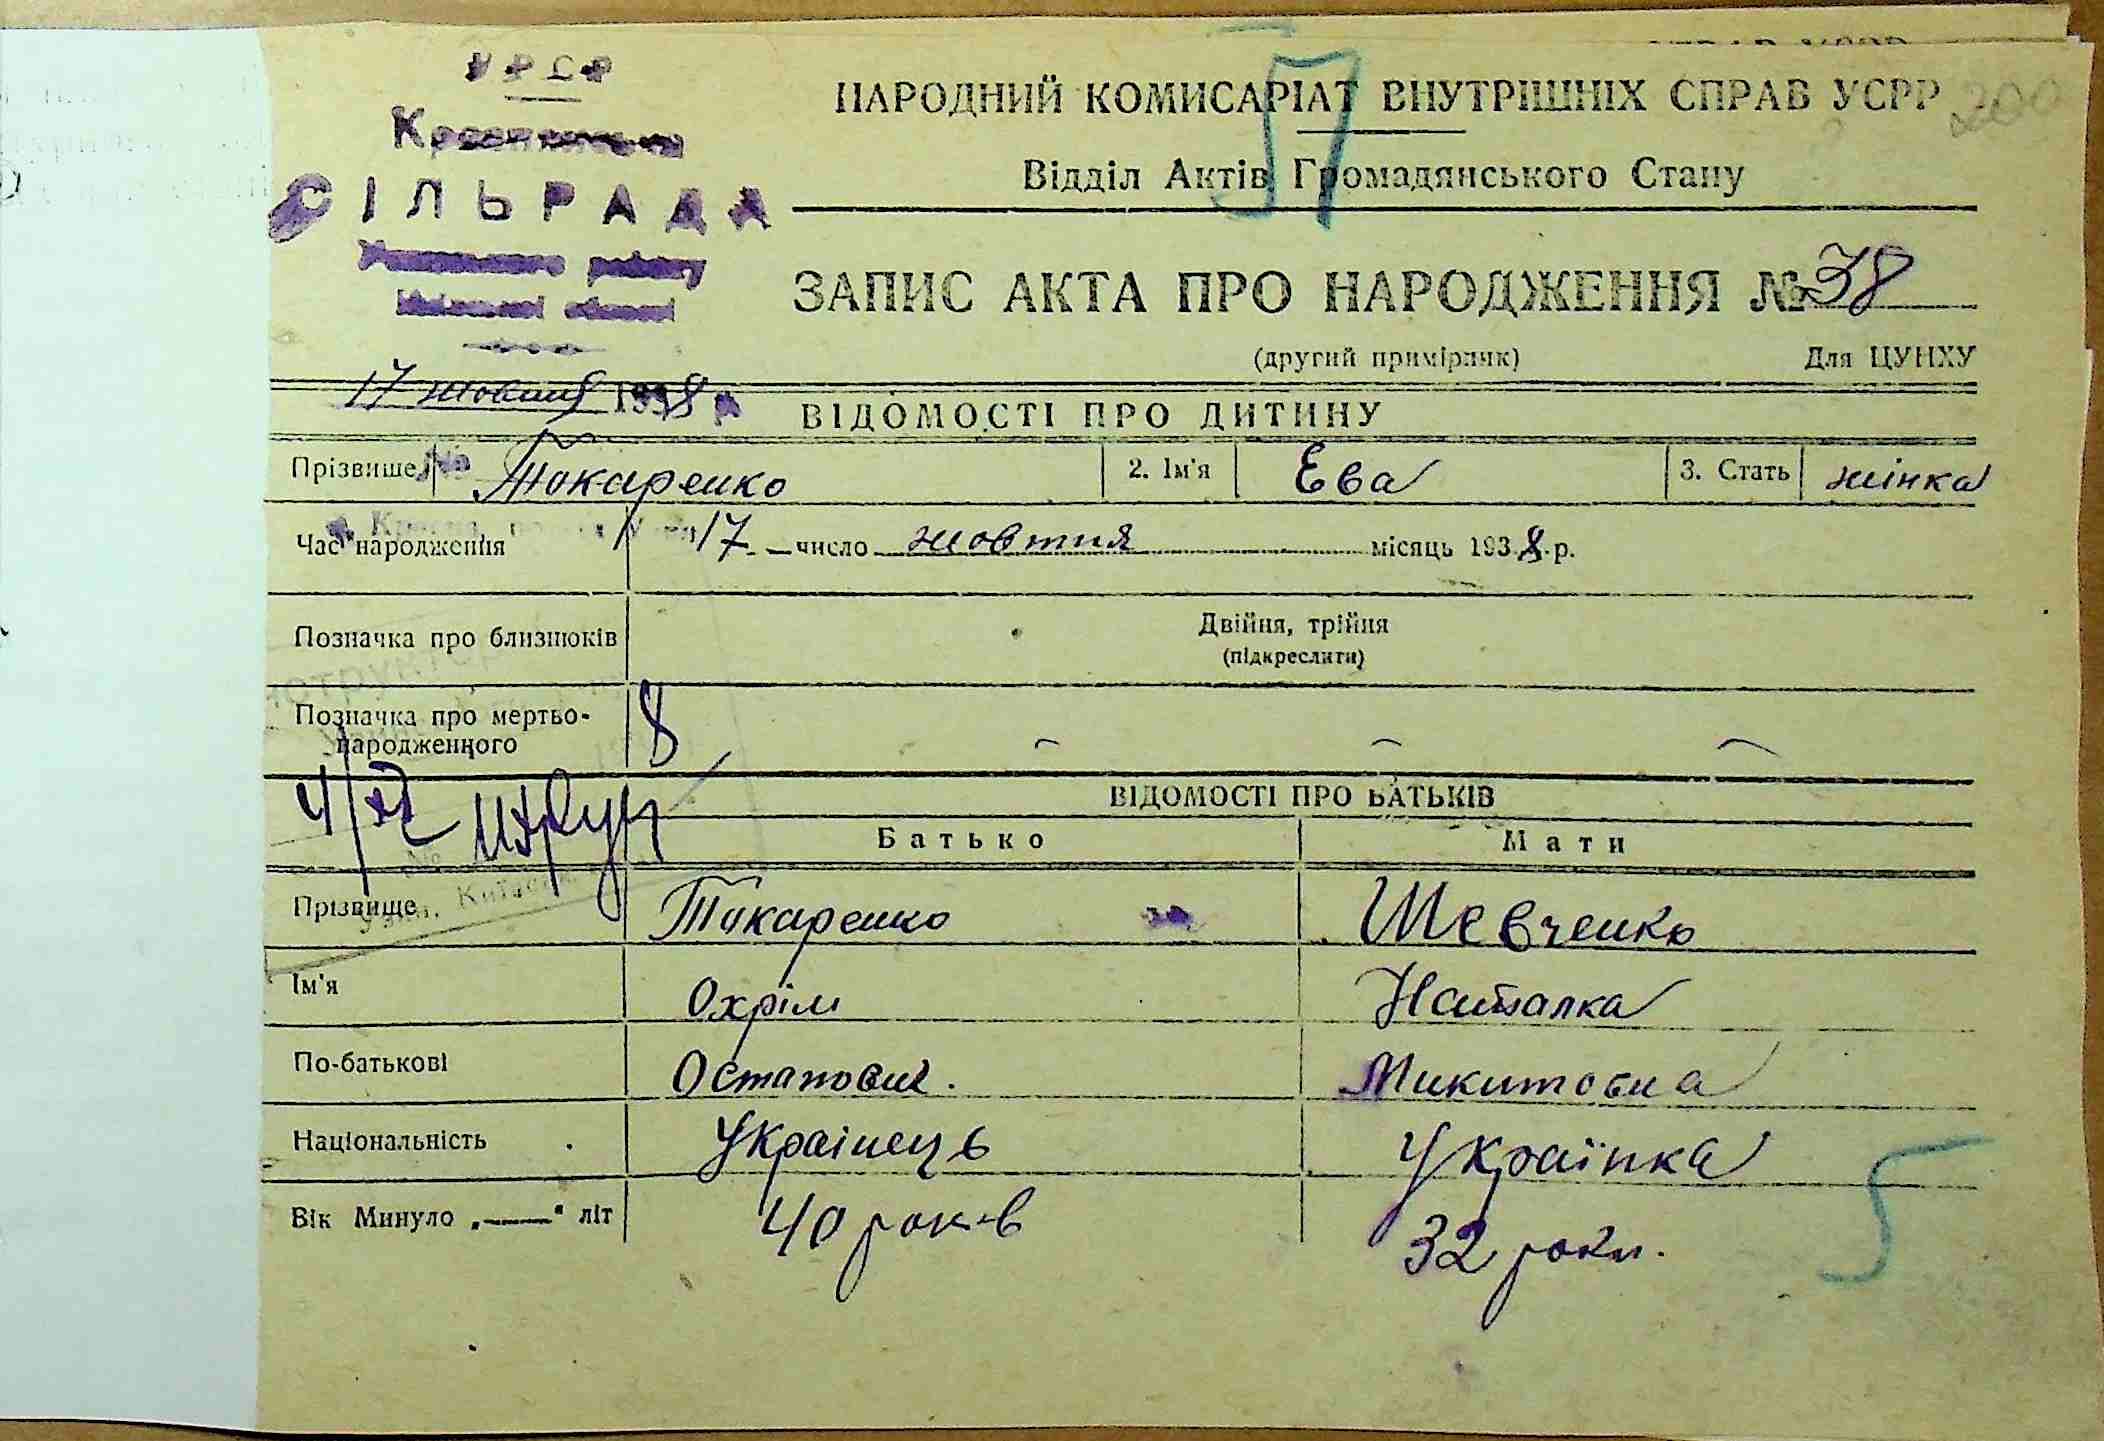 УРСР
СІЛЬРАДА
НАРОДНИЙ КОМИСАРІАТ ВНУТРІШНІХ СПРАВ УСРР
200
57
Відділ Актів Громадянського Стану
ЗАПИС АКТА ПРО НАРОДЖЕННЯ № 38
(другий примірник) Для ЦУНХУ
17 жовтня 1938 р
ВІДОМОСТІ ПРО ДИТИНУ
Прізвище Токаренко 2. Ім'я Ева 3. Стать жінка
Час народження 17 число жовтня місяць 1938 р.
Позначка про близнюків Двійня, трійня
(підкреслити)
Позначка про мертво-
народженного
8
ВІДОМОСТІ ПРО БАТЬКІВ
Батько Мати
Прізвище Токаренко Шевченко
Ім'я Охрім Наталка
По-батькові Остапович. Микитовна
Національність Українець Українка
Вік Минуло „——" літ 40 років 32 роки.
5